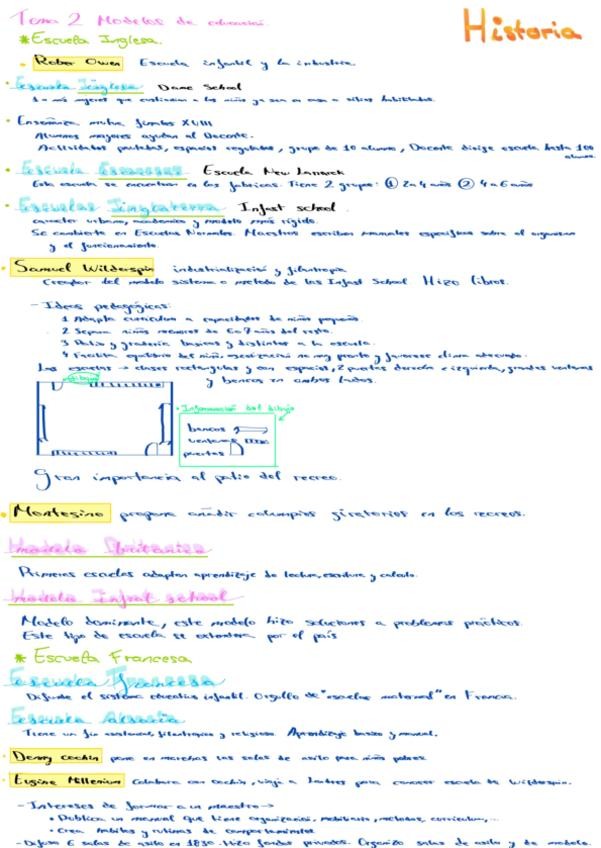 Tema 2 Modelos de educación.
Historia
* Escuela Inglesa.
Rober Owen Escuela infantil y la industria.
Escuela Inglesa Dame School
1 o más mujeres que cuidaban a los niños ya sea en casa o sitios habilitados.
Enseñanza mutua finales XVIII
Alumnos mayores ayudan al Docente.
Actividades pautadas, espacios regulados, grupo de 10 alumno, Docente dirige escuela hasta 100
alumnos
Escuela Escocesa Escuela New Lanarck
Esta escuela se encuentran en las fabricas. Tiene 2 grupos: ① 2 a 4 años ② 4 a 6 años
Escuelas Inglaterra Infast school.
caracter urbano, académica y modelo más rígido.
Se convierte en Escuelas Normales. Maestros escriben manuales específicos sobre el organizar
y el funcionamiento.
Samuel Wilderspin industrialización y filantropia
Creador del modelo sistema o metodo de las Infast School Hizo libros.
- Ideas pedagógicas:
1 Adapta curriculum a capacidades de niños pequeños.
2 Separa niños menores de 6 o 7 años del resto.
3 Patio y gradería basicos y distintos a la escuela.
4 Facilita equilibrio del niño, escolarización no muy pronto y favorece clima adecuado.
Las escuelas → clases rectangulares y con espacial, 2 puertas derecha e izquierda, grandes ventanas
y bancos en ambos lados.
Información del dibujo
bancos
ventanas
puertas
Gran importancia al patio del recreo.
Montesino propone añadir columpios giratorios en los recreos.
modelo britanico
Primeras escuelas adoptan aprendizaje de lectura, escritura y calculo.
Modelo Infast school
Modelo dominante, este modelo hizo soluciones a problemas prácticos.
Este tipo de escuela se extendera por el país
* Escuela Francesa
Escuela Francesa
Difunde el sistema educativo infantil. Orgullo de "escuelas maternal" en Francia.
Escuela alsacia
Tiene un fin asistencial, filantropica y religioso. Aprendizaje basico y manual.
Denny cochin pone en marchas las salas de asilo para niños pobres
Eugine Millenium Colabora con cochin, viaja a Londres para conocer escuela de Wilderspin.
- Intereses de formar a un maestro →
• Publica un manual que tiene organización, mobiliario, metodos, curriculum,...
• Crea hábitos y rutinas de comportamientos
- Difuso 6 salas de asilo en 1830. Hizo fondos privados. Organizo salas de asilo y de modelo.